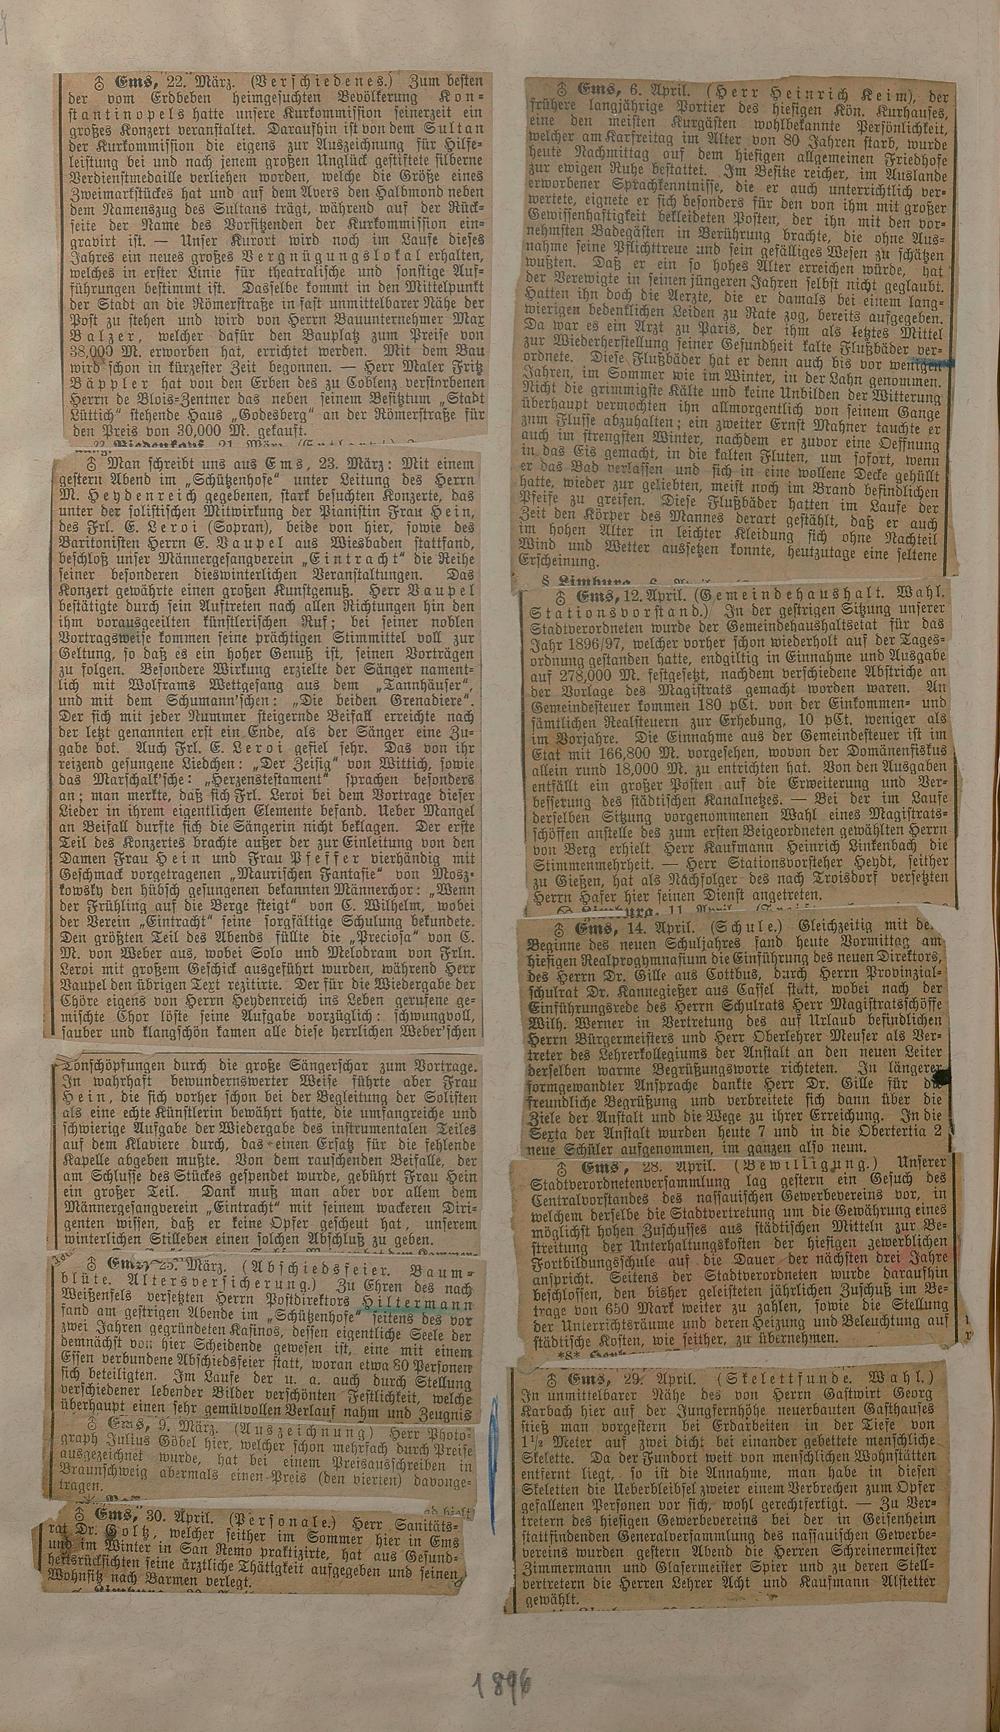 ♁ Ems, 22. März. (Verschiedenes.) Zum besten
der vom Erdbeben heimgesuchten Bevölkerung Kon-
stantinopels hatte unsere Kurkommission seinerzeit ein
großes Konzert veranstaltet. Daraufhin ist von dem Sultan
der Kurkommission die eigens zur Auszeichnung für Hilfe-
leistung bei und nach jenem großen Unglück gestiftete silberne
Verdienstmedaille verliehen worden, welche die Größe eines
Zweimarkstückes hat und auf dem Avers den Halbmond neben
dem Namenszug des Sultans trägt, während auf der Rück-
seite der Name des Vorsitzenden der Kurkommission ein-
gravirt ist. — Unser Kurort wird noch im Laufe dieses
Jahres ein neues großes Vergnügungslokal erhalten,
welches in erster Linie für theatralische und sonstige Auf-
führungen bestimmt ist. Dasselbe kommt in den Mittelpunkt
der Stadt an die Römerstraße in fast unmittelbarer Nähe der
Post zu stehen und wird von Herrn Bauunternehmer Max
Balzer, welcher dafür den Bauplatz zum Preise von
38,000 M. erworben hat, errichtet werden. Mit dem Bau
wird schon in kürzester Zeit begonnen. — Herr Maler Fritz
Bäppler hat von den Erben des zu Coblenz verstorbenen
Herrn de Blois-Zentner das neben seinem Besitztum „Stadt
Lüttich“ stehende Haus „Godesberg“ an der Römerstraße für
den Preis von 30,000 M. gekauft.
Biedenkopf, 21. März.
♁ Man schreibt uns aus Ems, 23. März: Mit einem
gestern Abend im „Schützenhofe“ unter Leitung des Herrn
M. Heydenreich gegebenen, stark besuchten Konzerte, das
unter der solistischen Mitwirkung der Pianistin Frau Hein,
des Frl. E. Leroi (Sopran), beide von hier, sowie des
Baritonisten Herrn E. Vaupel aus Wiesbaden stattfand,
beschloß unser Männergesangverein „Eintracht“ die Reihe
seiner besonderen dieswinterlichen Veranstaltungen. Das
Konzert gewährte einen großen Kunstgenuß. Herr Vaupel
bestätigte durch sein Auftreten nach allen Richtungen hin den
ihm vorausgeeilten künstlerischen Ruf; bei seiner noblen
Vortragsweise kommen seine prächtigen Stimmittel voll zur
Geltung, so daß es ein hoher Genuß ist, seinen Vorträgen
zu folgen. Besondere Wirkung erzielte der Sänger nament-
lich mit Wolframs Wettgesang aus dem „Tannhäuser“,
und mit dem Schumann'schen: „Die beiden Grenadiere“.
Der sich mit jeder Nummer steigernde Beifall erreichte nach
der letzt genannten erst ein Ende, als der Sänger eine Zu-
gabe bot. Auch Frl. E. Leroi gefiel sehr. Das von ihr
reizend gesungene Liedchen: „Der Zeisig“ von Wittich, sowie
das Marschalk'sche: „Herzenstestament“ sprachen besonders
an; man merkte, daß sich Frl. Leroi bei dem Vortrage dieser
Lieder in ihrem eigentlichen Elemente befand. Ueber Mangel
an Beifall durfte sich die Sängerin nicht beklagen. Der erste
Teil des Konzertes brachte außer der zur Einleitung von den
Damen Frau Hein und Frau Pfeffer vierhändig mit
Geschmack vorgetragenen „Maurischen Fantasie“ von Mosz-
kowsky den hübsch gesungenen bekannten Männerchor: „Wenn
der Frühling auf die Berge steigt“ von C. Wilhelm, wobei
der Verein „Eintracht“ seine sorgfältige Schulung bekundete.
Den größten Teil des Abends füllte die „Preciosa“ von C.
M. von Weber aus, wobei Solo und Melodram von Frln.
Leroi mit großem Geschick ausgeführt wurden, während Herr
Vaupel den übrigen Text rezitirte. Der für die Wiedergabe der
Chöre eigens von Herrn Heydenreich ins Leben gerufene ge-
mischte Chor löste seine Aufgabe vorzüglich: schwungvoll,
sauber und klangschön kamen alle diese herrlichen Weber'schen
Tonschöpfungen durch die große Sängerschar zum Vortrage.
In wahrhaft bewundernswerter Weise führte aber Frau
Hein, die sich vorher schon bei der Begleitung der Solisten
als eine echte Künstlerin bewährt hatte, die umfangreiche und
schwierige Aufgabe der Wiedergabe des instrumentalen Teiles
auf dem Klaviere durch, das einen Ersatz für die fehlende
Kapelle abgeben mußte. Von dem rauschenden Beifalle, der
am Schlusse des Stückes gespendet wurde, gebührt Frau Hein
ein großer Teil. Dank muß man aber vor allem dem
Männergesangverein „Eintracht“ mit seinem wackeren Diri-
genten wissen, daß er keine Opfer gescheut hat, unserem
winterlichen Stilleben einen solchen Abschluß zu geben.
♁ Ems, 25. März. (Abschiedsfeier. Baum-
blüte. Altersversicherung.) Zu Ehren des nach
Weißenfels versetzten Herrn Postdirektors Hiltermann
fand am gestrigen Abende im „Schützenhofe“ seitens des vor
zwei Jahren gegründeten Kasinos, dessen eigentliche Seele der
demnächst von hier Scheidende gewesen ist, eine mit einem
Essen verbundene Abschiedsfeier statt, woran etwa 80 Personen
sich beteiligten. Im Laufe der u. a. auch durch Stellung
verschiedener lebender Bilder verschönten Festlichkeit, welche
überhaupt einen sehr gemütvollen Verlauf nahm und Zeugnis
♁ Ems, 9. März. (Auszeichnung) Herr Photo-
graph Julius Göbel hier, welcher schon mehrfach durch Preise
ausgezeichnet wurde, hat bei einem Preisausschreiben in
Braunschweig abermals einen Preis (den vierten) davonge-
tragen.
♁ Ems, 30. April. (Personale.) Herr Sanitäts-
rat Dr. Goltz, welcher seither im Sommer hier in Ems
und im Winter in San Remo praktizirte, hat aus Gesund-
heitsrücksichten seine ärztliche Thätigkeit aufgegeben und seinen
Wohnsitz nach Barmen verlegt.
♁ Ems, 6. April. (Herr Heinrich Keim), der
frühere langjährige Portier des hiesigen Kön. Kurhauses,
eine den meisten Kurgästen wohlbekannte Persönlichkeit,
welcher am Karfreitag im Alter von 80 Jahren starb, wurde
heute Nachmittag auf dem hiesigen allgemeinen Friedhofe
zur ewigen Ruhe bestattet. Im Besitze reicher, im Auslande
erworbener Sprachkenntnisse, die er auch unterrichtlich ver-
wertete, eignete er sich besonders für den von ihm mit großer
Gewissenhaftigkeit bekleideten Posten, der ihn mit den vor-
nehmsten Badegästen in Berührung brachte, die ohne Aus-
nahme seine Pflichttreue und sein gefälliges Wesen zu schätzen
wußten. Daß er ein so hohes Alter erreichen würde, hat
der Verewigte in seinen jüngeren Jahren selbst nicht geglaubt.
Hatten ihn doch die Aerzte, die er damals bei einem lang-
wierigen bedenklichen Leiden zu Rate zog, bereits aufgegeben.
Da war es ein Arzt zu Paris, der ihm als letztes Mittel
zur Wiederherstellung seiner Gesundheit kalte Flußbäder ver-
ordnete. Diese Flußbäder hat er denn auch bis vor wenigen
Jahren, im Sommer wie im Winter, in der Lahn genommen.
Nicht die grimmigste Kälte und keine Unbilden der Witterung
überhaupt vermochten ihn allmorgentlich von seinem Gange
zum Flusse abzuhalten; ein zweiter Ernst Mahner tauchte er
auch im strengsten Winter, nachdem er zuvor eine Oeffnung
in das Eis gemacht, in die kalten Fluten, um sofort, wenn
er das Bad verlassen und sich in eine wollene Decke gehüllt
hatte, wieder zur geliebten, meist noch im Brand befindlichen
Pfeife zu greifen. Diese Flußbäder hatten im Laufe der
Zeit den Körper des Mannes derart gestählt, daß er auch
im hohen Alter in leichter Kleidung sich ohne Nachteil
Wind und Wetter aussetzen konnte, heutzutage eine seltene
Erscheinung.
§ Limburg,
♁ Ems, 12. April. (Gemeindehaushalt. Wahl.
Stationsvorstand.) In der gestrigen Sitzung unserer
Stadtverordneten wurde der Gemeindehaushaltsetat für das
Jahr 1896/97, welcher vorher schon wiederholt auf der Tages-
ordnung gestanden hatte, endgiltig in Einnahme und Ausgabe
auf 278,000 M. festgesetzt, nachdem verschiedene Abstriche an
der Vorlage des Magistrats gemacht worden waren. An
Gemeindesteuer kommen 180 pCt. von der Einkommen- und
sämtlichen Realsteuern zur Erhebung, 10 pCt. weniger als
im Vorjahre. Die Einnahme aus der Gemeindesteuer ist im
Etat mit 166,800 M. vorgesehen, wovon der Domänenfiskus
allein rund 18,000 M. zu entrichten hat. Von den Ausgaben
entfällt ein großer Posten auf die Erweiterung und Ver-
besserung des städtischen Kanalnetzes. — Bei der im Laufe
derselben Sitzung vorgenommenen Wahl eines Magistrats-
schöffen anstelle des zum ersten Beigeordneten gewählten Herrn
von Berg erhielt Herr Kaufmann Heinrich Linkenbach die
Stimmenmehrheit. — Herr Stationsvorsteher Heydt, seither
zu Gießen, hat als Nachfolger des nach Troisdorf versetzten
Herrn Hafer hier seinen Dienst angetreten.
Limburg, 11. April.
♁ Ems, 14. April. (Schule.) Gleichzeitig mit dem
Beginne des neuen Schuljahres fand heute Vormittag am
hiesigen Realprogymnasium die Einführung des neuen Direktors,
des Herrn Dr. Gille aus Cottbus, durch Herrn Provinzial-
schulrat Dr. Kannegießer aus Cassel statt, wobei nach der
Einführungsrede des Herrn Schulrats Herr Magistratsschöffe
Wilh. Werner in Vertretung des auf Urlaub befindlichen
Herrn Bürgermeisters und Herr Oberlehrer Meuser als Ver-
treter des Lehrerkollegiums der Anstalt an den neuen Leiter
derselben warme Begrüßungsworte richteten. In längerer
formgewandter Ansprache dankte Herr Dr. Gille für die
freundliche Begrüßung und verbreitete sich dann über die
Ziele der Anstalt und die Wege zu ihrer Erreichung. In die
Sexta der Anstalt wurden heute 7 und in die Obertertia 2
neue Schüler aufgenommen, im ganzen also neun.
♁ Ems, 28. April. (Bewilligung.) Unserer
Stadtverordnetenversammlung lag gestern ein Gesuch des
Centralvorstandes des nassauischen Gewerbevereins vor, in
welchem derselbe die Stadtvertretung um die Gewährung eines
möglichst hohen Zuschusses aus städtischen Mitteln zur Be-
streitung der Unterhaltungskosten der hiesigen gewerblichen
Fortbildungschule auf die Dauer der nächsten drei Jahre
anspricht. Seitens der Stadtverordneten wurde daraufhin
beschlossen, den bisher geleisteten jährlichen Zuschuß im Be-
trage von 650 Mark weiter zu zahlen, sowie die Stellung
der Unterrichtsräume und deren Heizung und Beleuchtung auf
städtische Kosten, wie seither, zu übernehmen.
♁ Ems, 29. April. (Skelettfunde. Wahl.)
In unmittelbarer Nähe des von Herrn Gastwirt Georg
Karbach hier auf der Jungfernhöhe neuerbauten Gasthauses
stieß man vorgestern bei Erdarbeiten in der Tiefe von
1½ Meter auf zwei dicht bei einander gebettete menschliche
Skelette. Da der Fundort weit von menschlichen Wohnstätten
entfernt liegt, so ist die Annahme, man habe in diesen
Skeletten die Ueberbleibsel zweier einem Verbrechen zum Opfer
gefallenen Personen vor sich, wohl gerechtfertigt. — Zu Ver-
tretern des hiesigen Gewerbevereins bei der in Geisenheim
stattfindenden Generalversammlung des nassauischen Gewerbe-
vereins wurden gestern Abend die Herren Schreinermeister
Zimmermann und Glasermeister Spier und zu deren Stell-
vertretern die Herren Lehrer Acht und Kaufmann Alstetter
gewählt.
1896